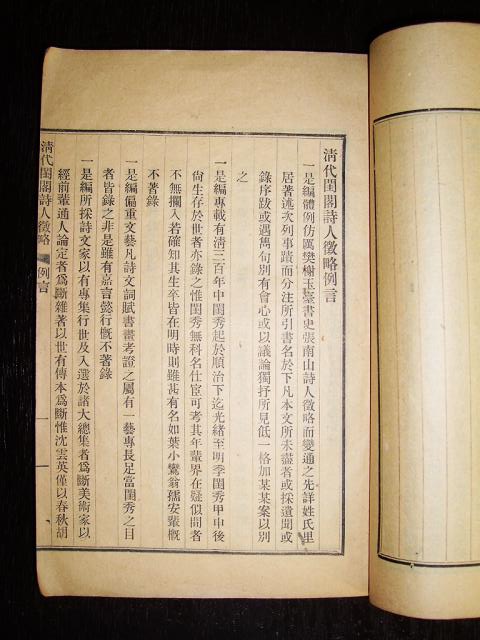 清代閨閣詩人徵略例言
一是編體例仿厲樊榭玉臺書史張南山詩人徵略而變通之先詳姓氏里
居著述次列事蹟而分注所引書名於下凡本文所未盡者或採遺聞或
錄序跋或遇雋句別有會心或以議論獨抒所見低一格加某某案以別
之
一是編專載有清三百年中閨秀起於順治下迄光緒至明季閨秀甲申後
尙生存於世者亦錄之惟閨秀無科名仕宦可考其年輩界在疑似間者
不無攔入若確知其生卒皆在明時則雖甚有名如葉小鸞翁孺安輩槪
不著錄
一是編偏重文藝凡詩文詞賦書畫考證之屬有一藝專長足當閨秀之目
者皆錄之非是雖有嘉言懿行槪不著錄
一是編所採詩文家以有專集行世及入選於諸大總集者爲斷美術家以
經前輩通人論定者爲斷雜著以世有傳本爲斷惟沈雲英僅以春秋胡
清代閨閣詩人徵略
例言
一